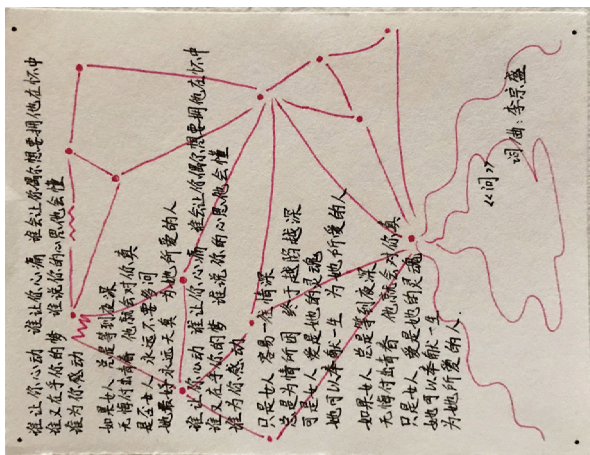 谁让你心动 谁让你心痛 谁会让你偶尔想要拥他在怀中
谁又在乎你的梦 谁说你的心思他会懂
谁为你感动
如果女人 总是等到夜深
无悔付出青春 他就会对你真
是否女人 永远不要多问
她最好永远天真 为她所爱的人
谁让你心动 谁让你心痛 谁会让你偶尔想要拥他在怀中
谁又在乎你的梦 谁说你的心思他会懂
谁为你感动
只是女人 容易一往情深
总是为情所困 终于越陷越深
可是女人 爱是她的灵魂
她可以奉献一生 为她所爱的人
如果女人 总是等到夜深
无悔付出青春 他就会对你真
只是女人 爱是她的灵魂
她可以奉献一生
为她所爱的人.
《问》
词/曲：李宗盛